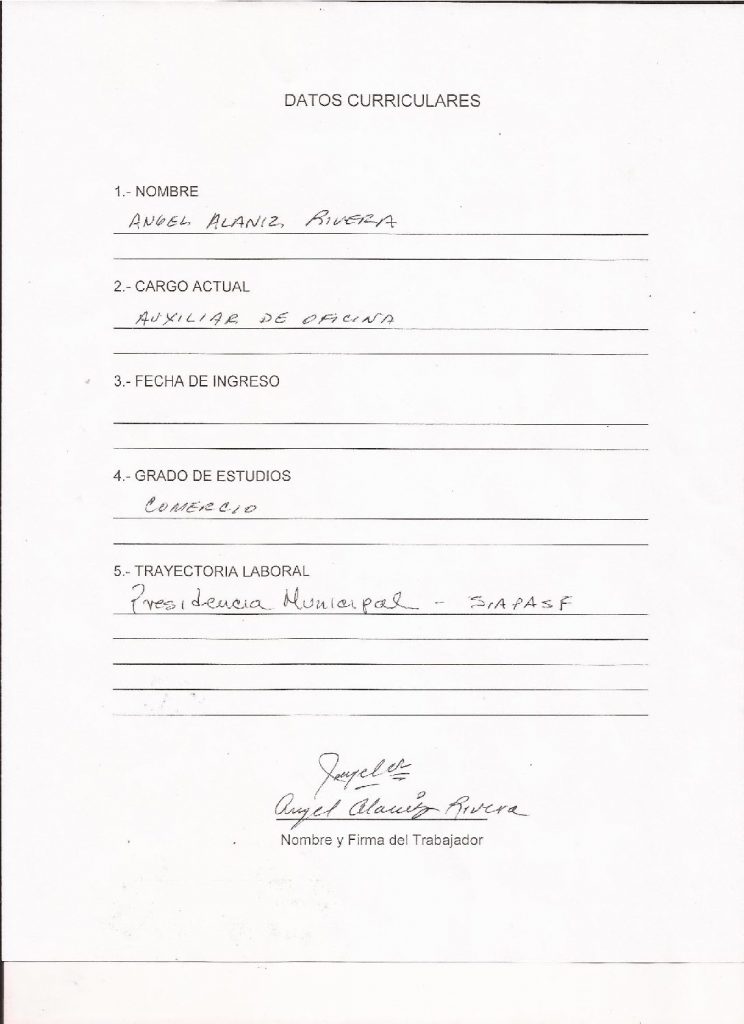 DATOS CURRICULARES
1.- NOMBRE
ANGEL ALANIZ RIVERA
2.- CARGO ACTUAL
AUXILIAR DE OFICINA
3.- FECHA DE INGRESO
4.- GRADO DE ESTUDIOS
COMERCIO
5.- TRAYECTORIA LABORAL
Presidencia Municipal - SIAPASF
Angel Alaniz Rivera
Nombre y Firma del Trabajador